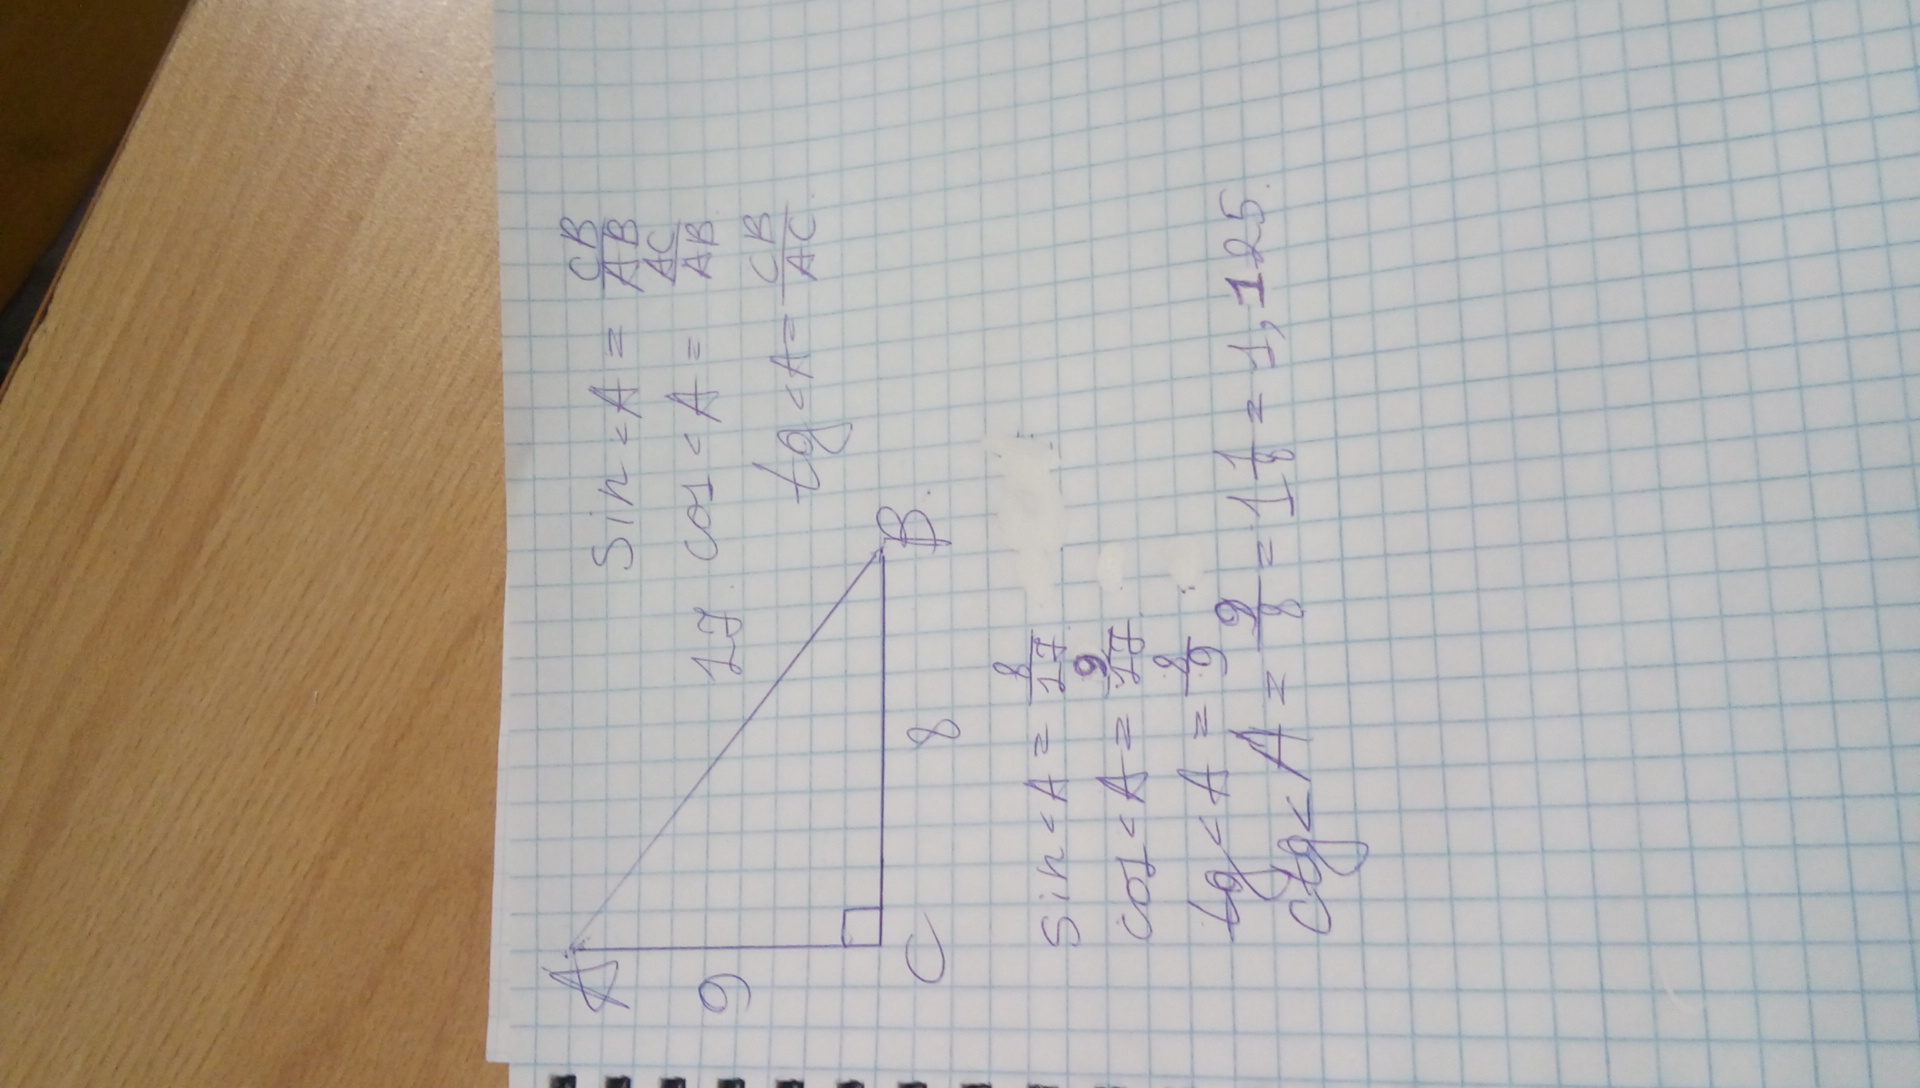 A
9
C
8
B
17
Sin<A = CB/AB
cos<A = AC/AB
tg<A = CB/AC
Sin<A = 8/17
cos<A = 9/17
tg<A = 8/9
ctg<A = 9/8 = 1 1/8 = 1,125.